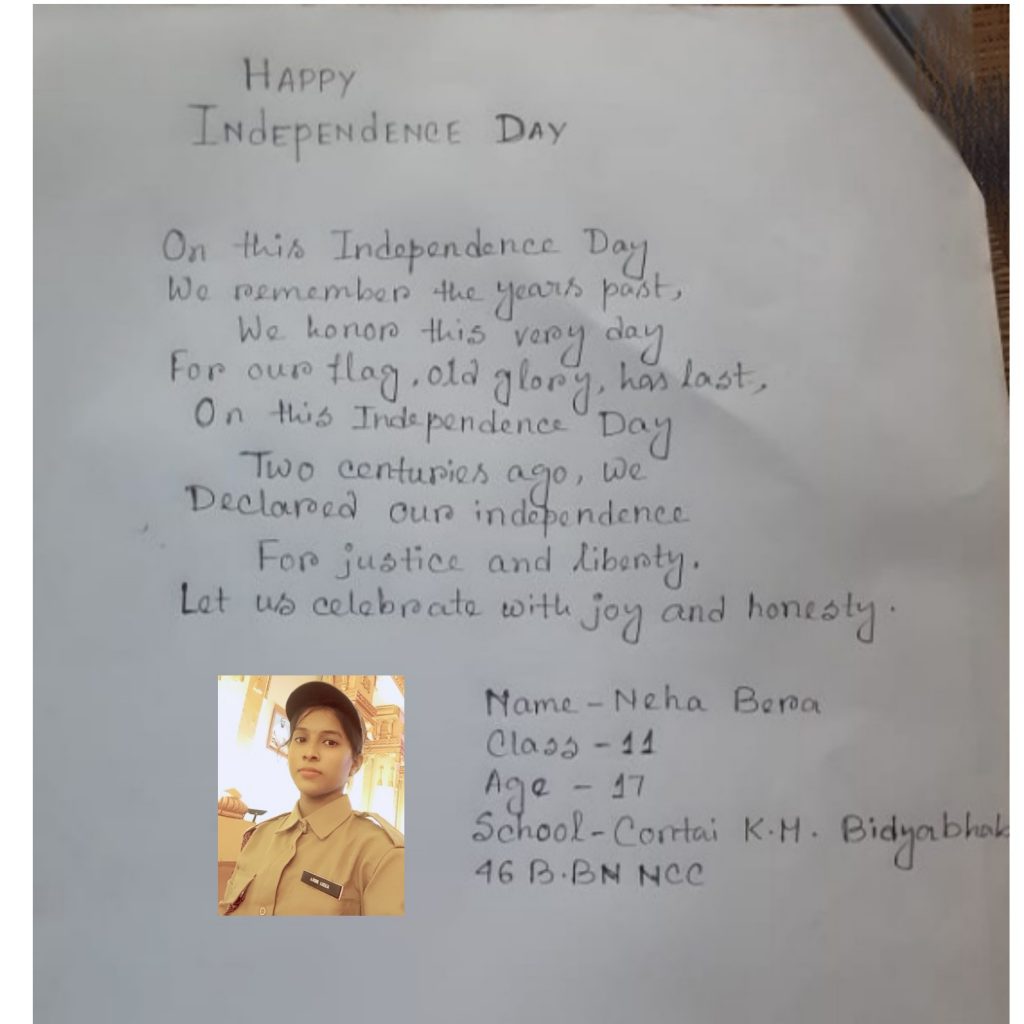 HAPPY
INdEpENdENCE DAY
On this Independence Day
We remember the years past,
We honor this very day
For our flag, old glory, has last,
On this Independence Day
Two centuries ago, we
Declared our independence
For justice and liberty.
Let us celebrate with joy and honesty.
Name - Neha Bera
Class - 11
Age - 17
School - Contai K.M. Bidyabhak
46 B.BN NCC